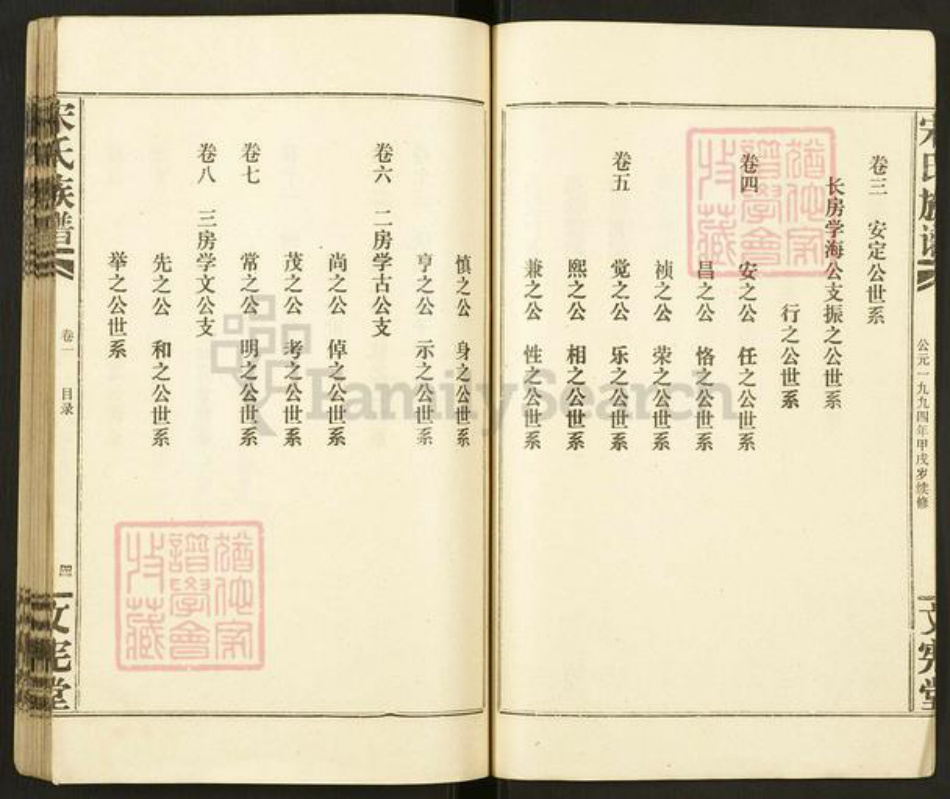 宋氏族谱
公元一九九四年甲戌岁续修
文宪堂
卷三 安定公世系
长房学海公支振之公世系
行之公世系
卷四 安之公 任之公世系
昌之公 恪之公世系
祯之公 荣之公世系
卷五 觉之公 乐之公世系
熙之公 相之公世系
兼之公 性之公世系
慎之公 身之公世系
亨之公 示之公世系
卷六 二房学古公支
尚之公 倬之公世系
茂之公 考之公世系
卷七 常之公 明之公世系
卷八 三房学文公支
先之公 和之公世系
举之公世系
宋氏族谱
卷一 目录
四
文宪堂
FamilySearch